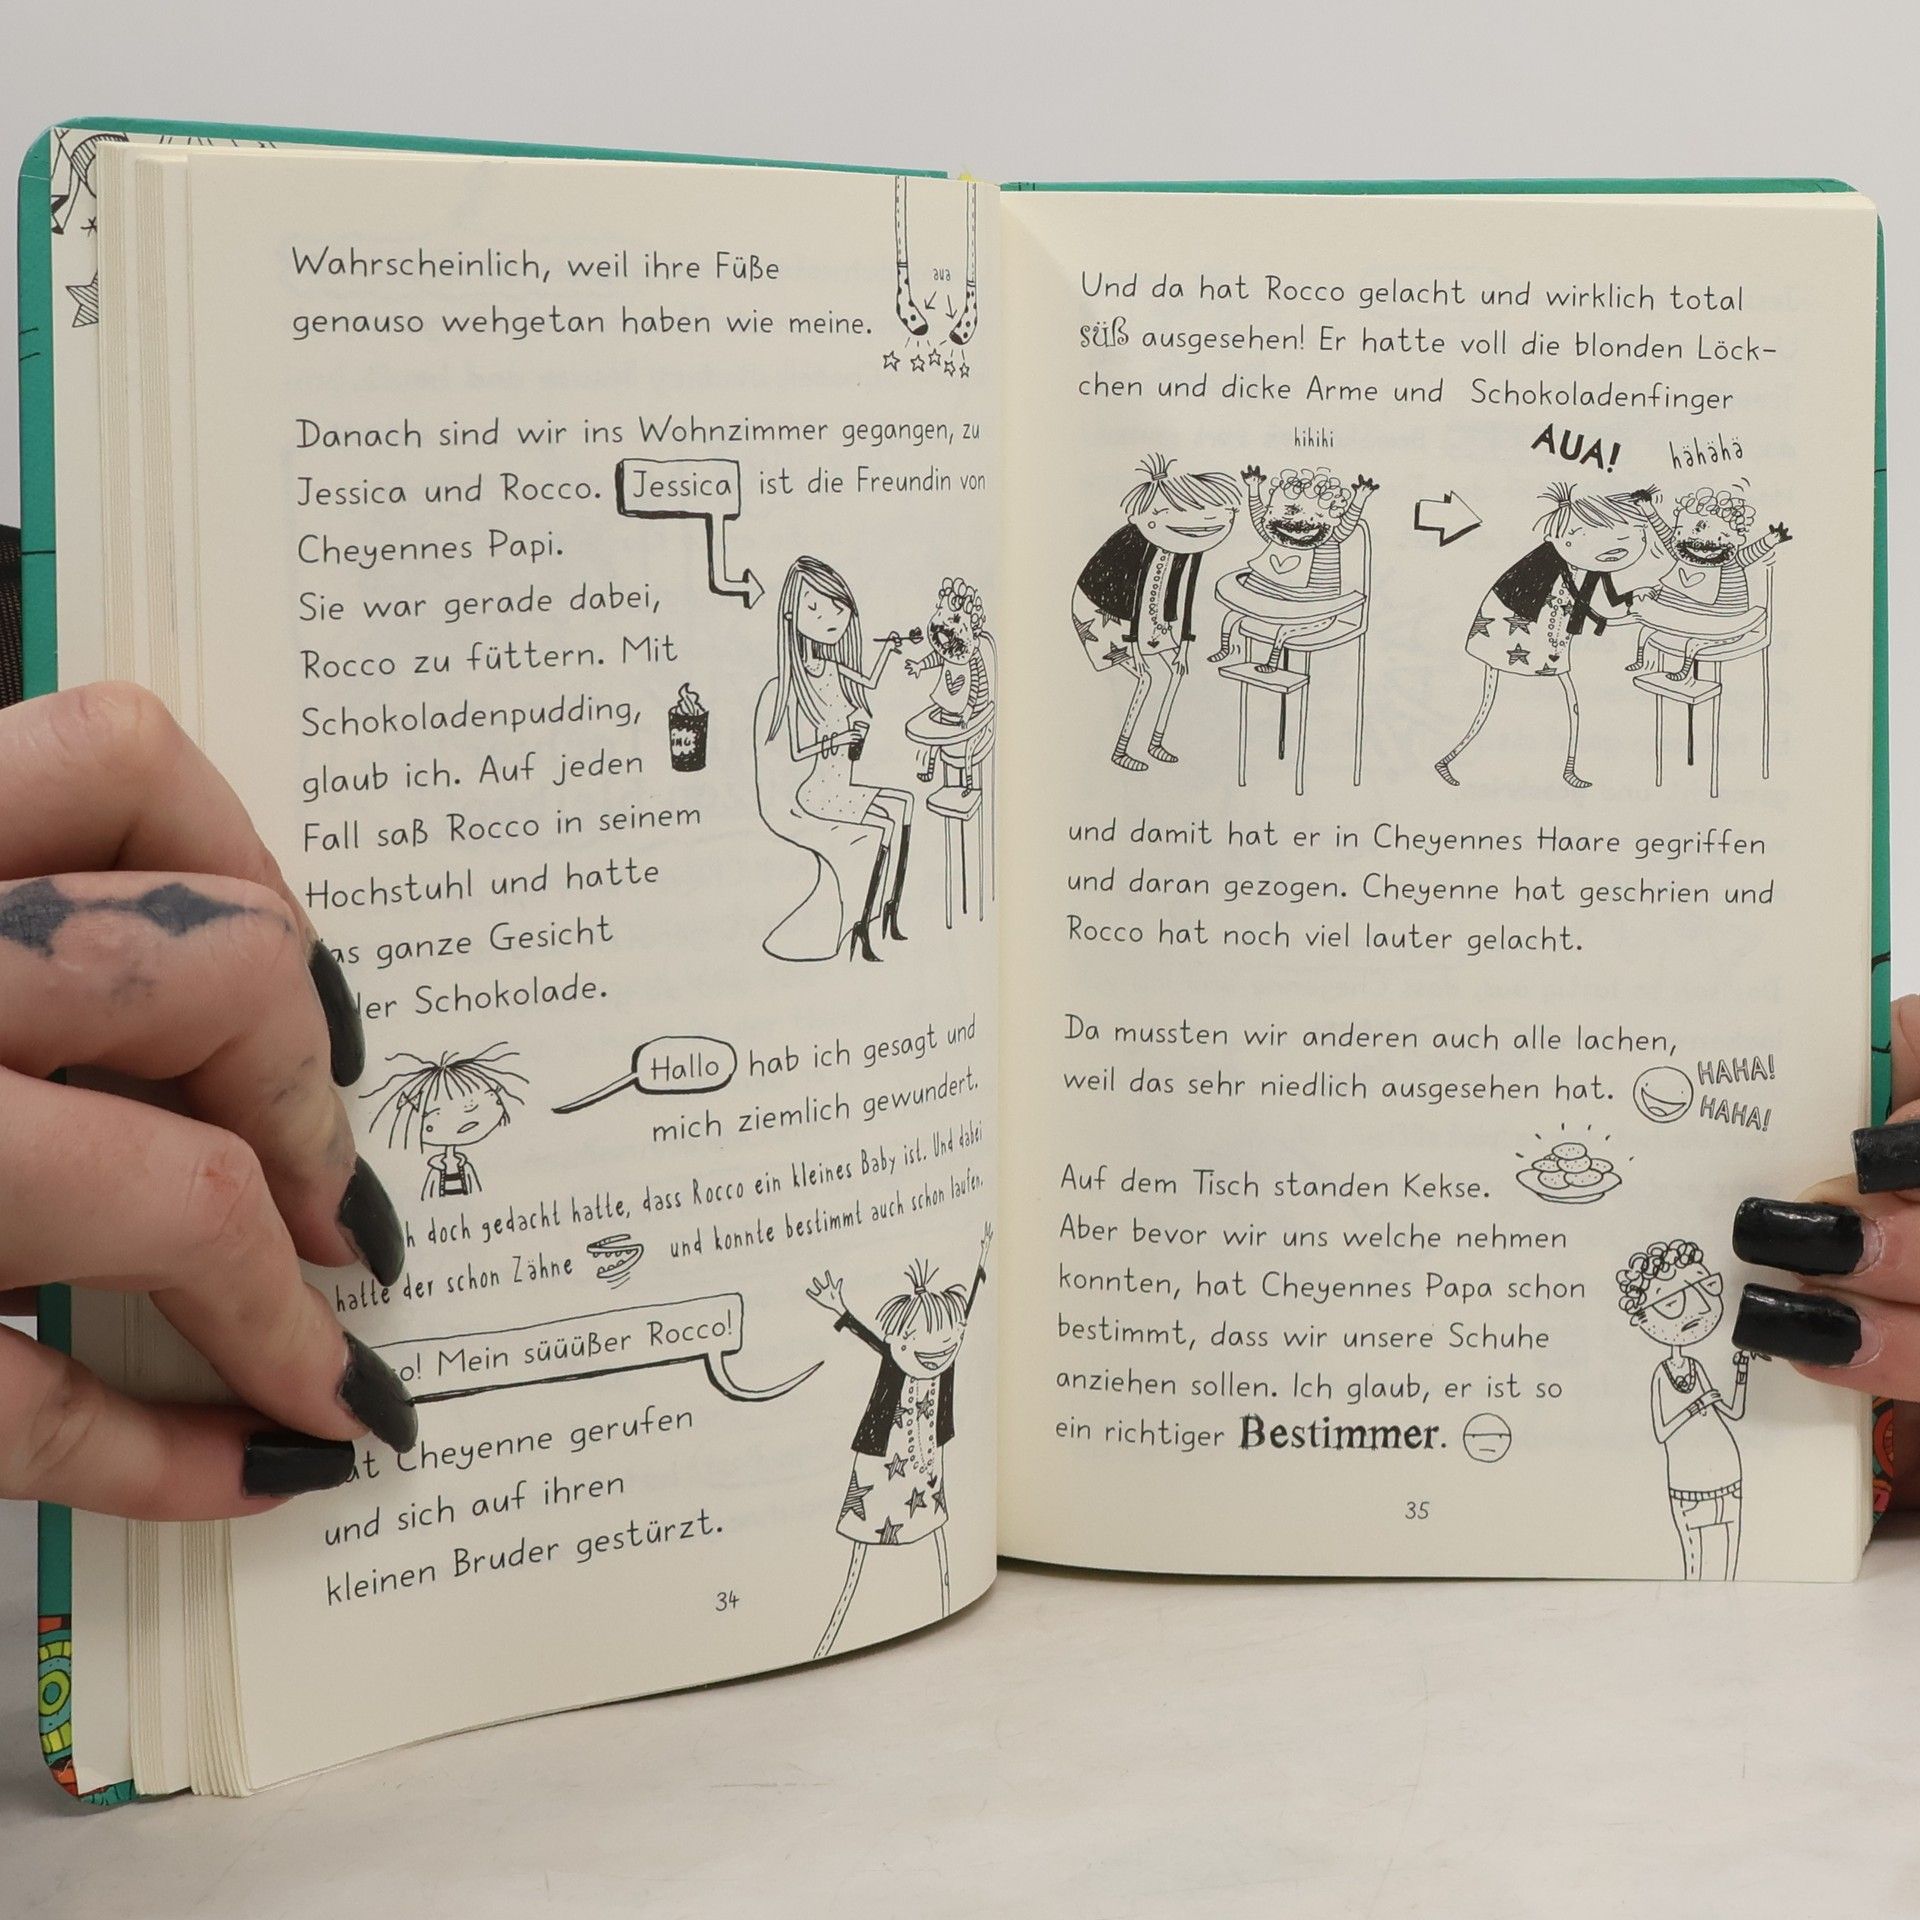 Wahrscheinlich, weil ihre Füße
genauso wehgetan haben wie meine.
aua
Danach sind wir ins Wohnzimmer gegangen, zu
Jessica und Rocco. Jessica ist die Freundin von
Cheyennes Papi.
Sie war gerade dabei,
Rocco zu füttern. Mit
Schokoladenpudding,
glaub ich. Auf jeden
Fall saß Rocco in seinem
Hochstuhl und hatte
ganze Gesicht
Schokolade.
Hallo hab ich gesagt und
mich ziemlich gewundert.
doch gedacht hatte, dass Rocco ein kleines Baby ist. Und dabei
hatte der schon Zähne und konnte bestimmt auch schon laufen.
Mein süüüßer Rocco!
Cheyenne gerufen
und sich auf ihren
kleinen Bruder gestürzt.
34
Und da hat Rocco gelacht und wirklich total
süß ausgesehen! Er hatte voll die blonden Löck-
chen und dicke Arme und Schokoladenfinger
hihihi
AUA!
hähähä
und damit hat er in Cheyennes Haare gegriffen
und daran gezogen. Cheyenne hat geschrien und
Rocco hat noch viel lauter gelacht.
Da mussten wir anderen auch alle lachen,
weil das sehr niedlich ausgesehen hat.
HAHA!
HAHA!
Auf dem Tisch standen Kekse.
Aber bevor wir uns welche nehmen
konnten, hat Cheyennes Papa schon
bestimmt, dass wir unsere Schuhe
anziehen sollen. Ich glaub, er ist so
ein richtiger Bestimmer.
35